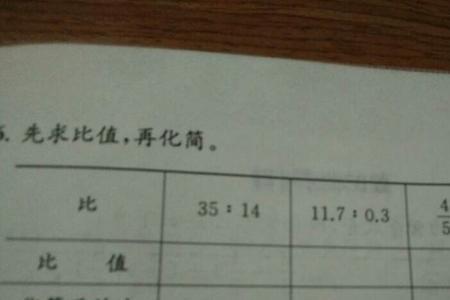 . 先求比值,再化简。
比 35：14 11.7：0.3 4/5
比 值